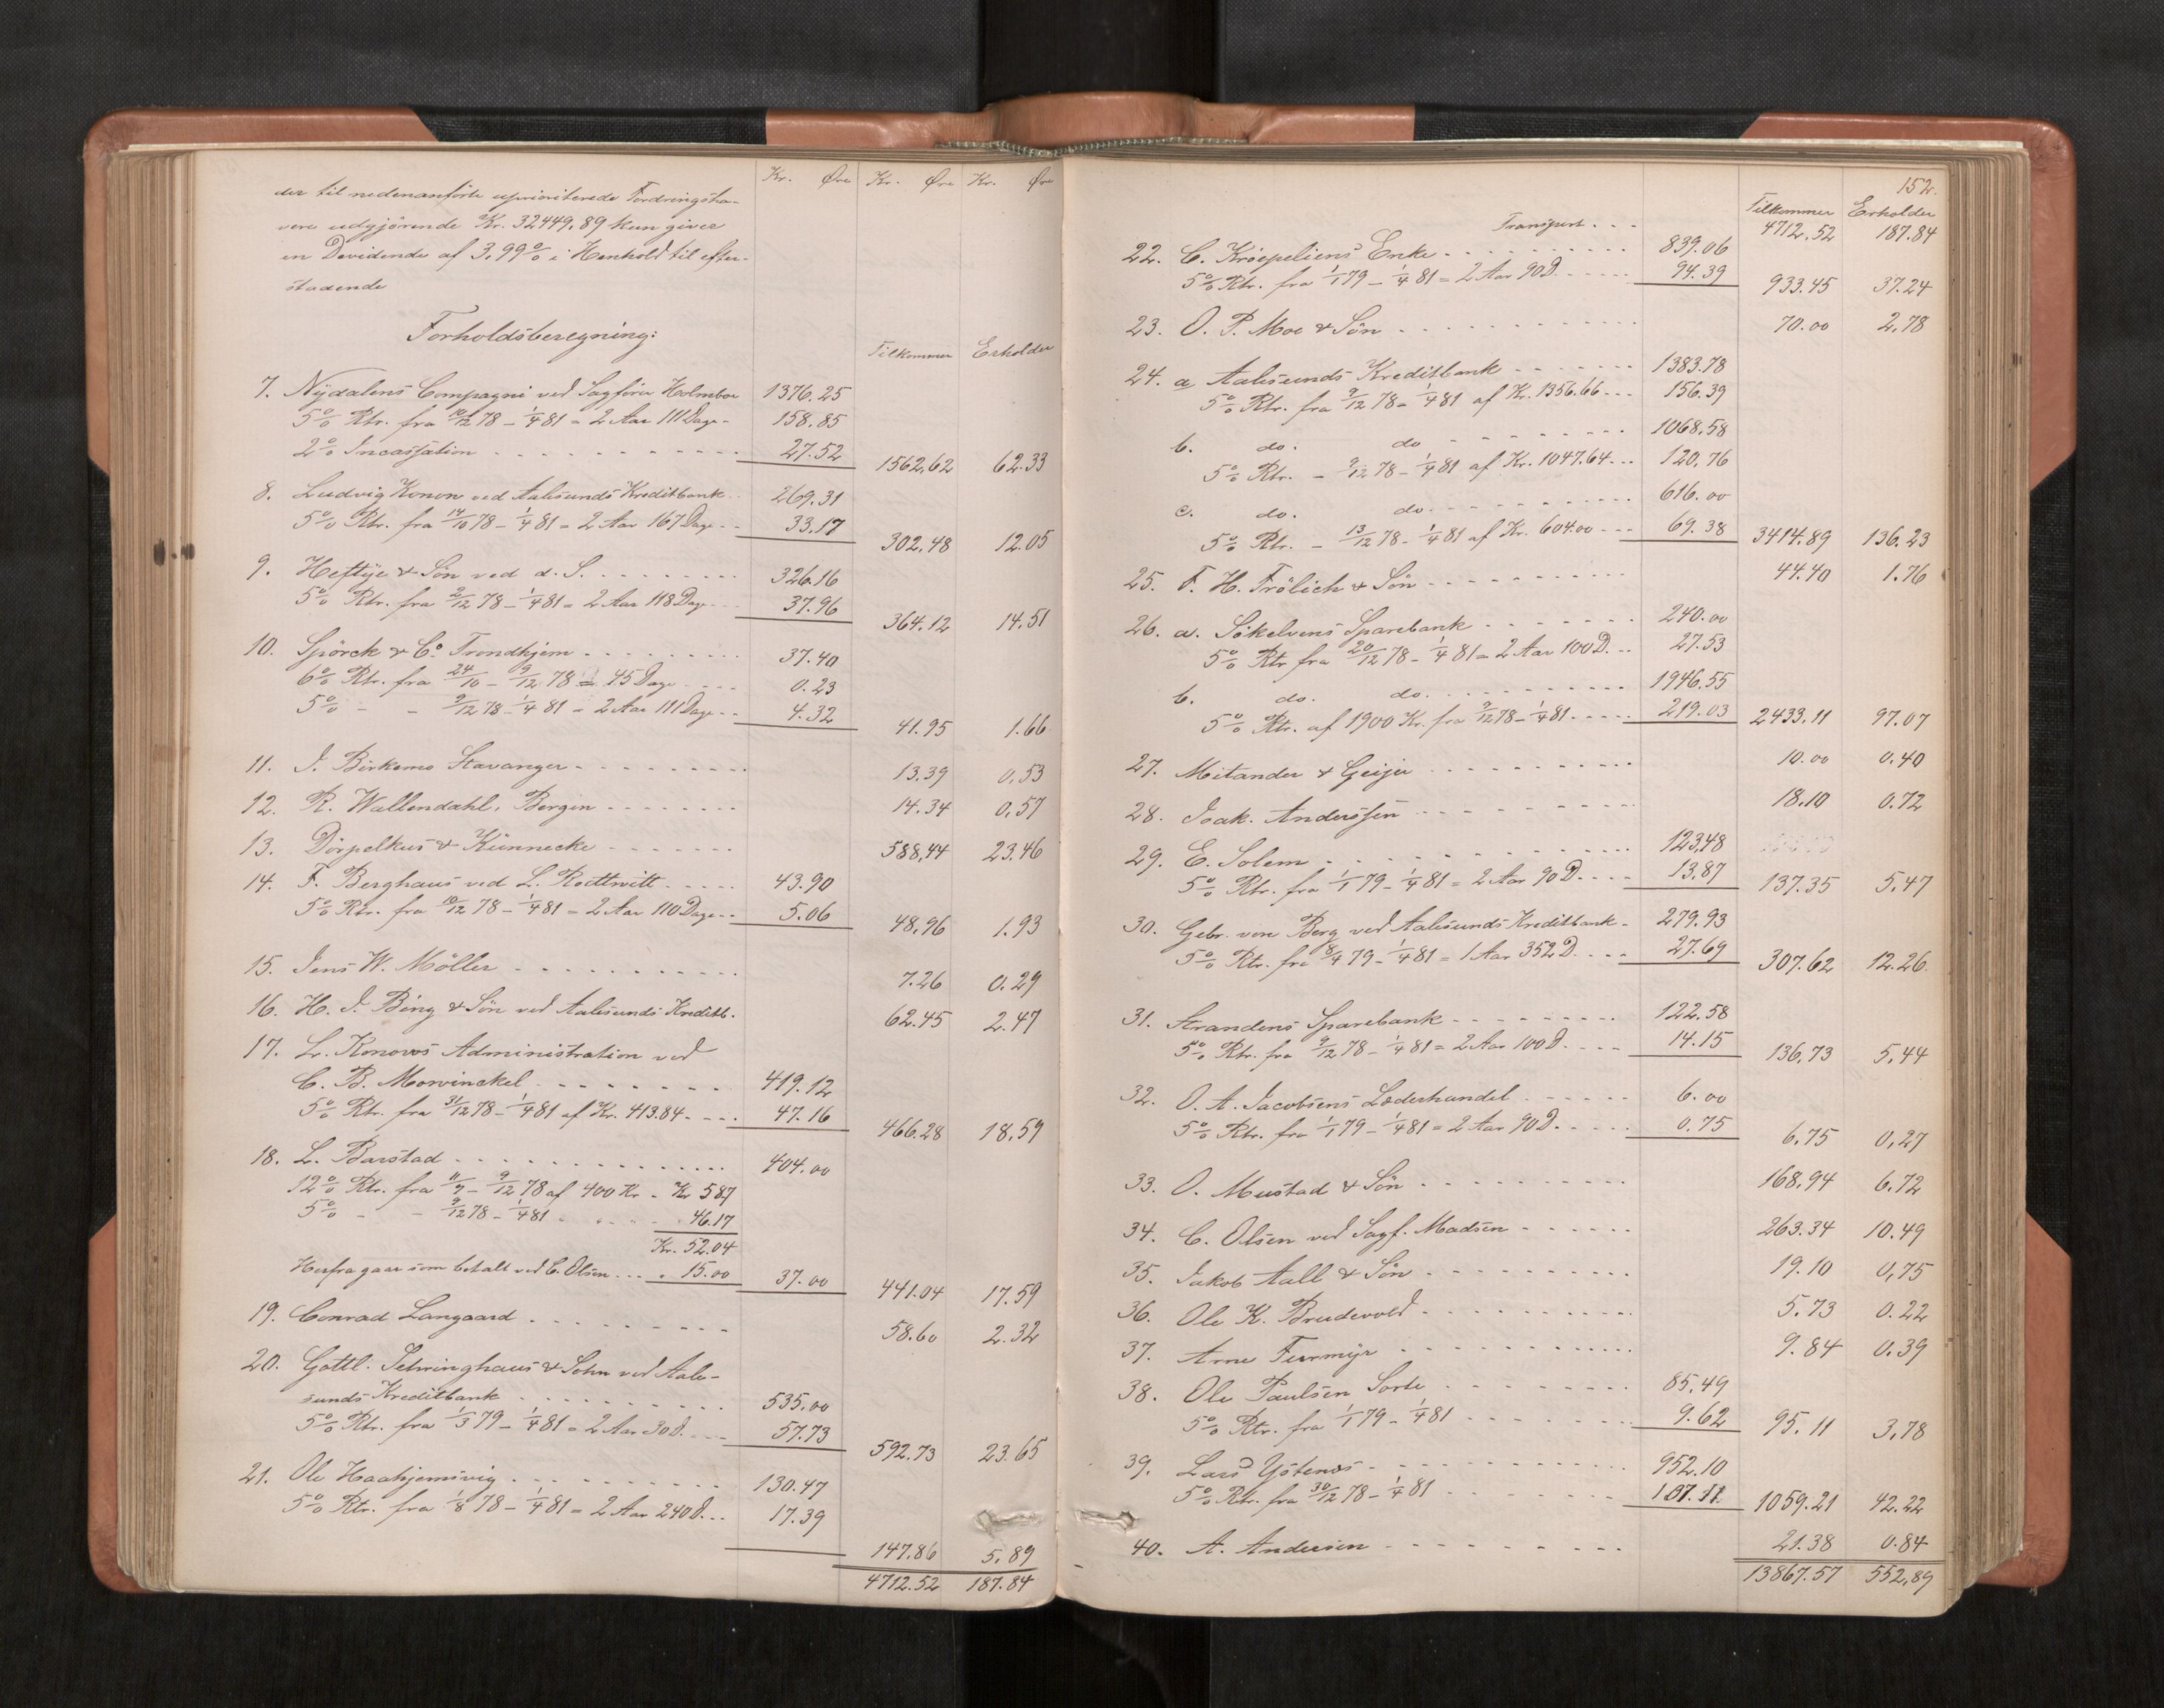 Kr. Øre Kr. Øre Kr. Øre
der til nedenanførte uprioriterede Fordringsha-
vere udgjörende Kr. 32449,89 kun giver
en Dividende af 3,99% i Henhold til efter-
staaende
Forholdsberegning:
Tilkommer Erholder
7. Nydalens Compagni ved Sagfører Holmboe 1376.25
5% Rtr. fra 10/12 78 – 1/4 81 = 2 Aar 111 Dage - 158.85
2% Incassation 27.52 1562,62 62.33
8. Ludvig Konow ved Aalesunds Kreditbank 269.31
5% Rtr. fra 14/10 78 – 1/4 81 = 2 Aar 167 Dage 33.17 302.48 12.05
9. Heftye & Søn ved d. S. 326.16
5% Rtr. fra 2/12 78 – 1/4 81 = 2 Aar 118 Dage 37.96 364.12 14.51
10. Spörck & Co. Trondhjem 37.40
6% Rtr. fra 24/10 – 9/12 78 = 45 Dage 0.23
5% – – 9/12 78 – 1/4 81 = 2 Aar 111 Dage 4.32 41.95 1.66
11. J. Birkemo Stavanger 13.39 0,53
12. R. Wallendahl, Bergen 14.34 0,57
13. Dörpelkus & Künnecke 588,44 23.46
14. F. Berghaus ved L. Roittwitt 43.90
5% Rtr. fra 10/12 78 – 1/4 81 = 2 Aar 110 Dage 5.06 48,96 1.93
15. Jens W. Möller 7.26 0.29
16. H. J. Bing & Søn ved Aalesunds Kreditb. 62.45 2.47
17. L. Konows Administration ved
C. B. Mowinckel 419.12
5% Rtr. fra 31/12 78 – 1/4 81 af Kr. 413.84 47.16 466.28 18,59
18. L. Barstad 404.00
12% Rtr. fra 11/9 – 9/12 78 af 400 Kr. Kr 5.87
5% – – 9/12 78 – 1/4 81 46.17
Kr. 52.04
Herfra gaar som betalt ved C. Olsen 15.00 37.00 441.04 17.59
19. Conrad Langaard 58.60 2.32
20. Gottl. Schringhaus & Sohn ved Aale-
sunds Kreditbank 535.00
5% Rtr. fra 1/3 79 – 1/4 81 = 2 Aar 30 D. 57.73 592.73 23.65
21. Ole Haahjemsvig 130.47
5% Rtr. fra 1/8 78 – 1/4 81 = 2 Aar 240 D. 17.39
147.86 5,89
4712.52 187.84
152.
Tilkommer Erholder
Transport 4712,52 187.84
22. C. Kröepeliens Enke 839.06
5% Rtr. fra 1/1 79 – 1/4 81 = 2 Aar 90 D. 94.39 933.45 37.24
23. O. P. Moe & Søn 70.00 2,78
24. a Aalesunds Kreditbank 1383.78
5% Rtr. fra 9/12 78 – 1/4 81 af Kr. 1356.66 156.39
b. do. do 1068.58
5% Rtr. – 9/12 78 – 1/4 81 af Kr. 1047.64 120,76
c. do. do. 616.00
5% Rtr. – 13/12 78 – 1/4 81 af Kr. 604.00 69.38 3414.89 136.23
25. F. H. Frölich & Søn 44.40 1.76
26. a. Sökelvens Sparebank 240.00
5% Rtr fra 20/12 78 – 1/4 81 = 2 Aar 100 D. 27.53
b. do. do. 1946.55
5% Rtr. af 1900 Kr. fra 9/12 78 – 1/4 81 219.03 2433.11 97.07
27. Mitander & Geijer 10.00 0.40
28. Isak. Anderssen 18.10 0.72
29. E. Solem 123,48
5% Rtr. fra 1/1 79 – 1/4 81 = 2 Aar 90 D. 13,87 137.35 5,47
30. Gebr. von Berg ved Aalesunds Kreditbank 279.93
5% Rtr. fra 8/4 79 – 1/4 81 = 1 Aar 352 D. 27.69 307.62 12.26
31. Strandens Sparebank 122.58
5% Rtr. fra 9/12 78 – 1/4 81 = 2 Aar 100 D. 14.15 136,73 5,44
32. O. A. Jacobsens Læderhandel 6.00
5% Rtr. fra 1/1 79 – 1/4 81 = 2 Aar 90 D. 0.75 6.75 0,27
33. O. Mustad & Søn 168,94 6.72
34. C. Olsen ved Sagf. Madsen 263.34 10.49
35. Jakob Aall & Søn 19.10 0,75
36. Ole K. Brudevold 5.73 0.22
37. Arne Furmyr 9.84 0.39
38. Ole Paulsen Sorte 85,49
5% Rtr. fra 1/1 79 – 1/4 81 9.62 95.11 3,78
39. Lars Ystenes 952.10
5% Rtr. fra 30/12 78 – 1/4 81 107.11 1059.21 42.22
40. A. Andersen 21.38 0.84
13867.57 552,89